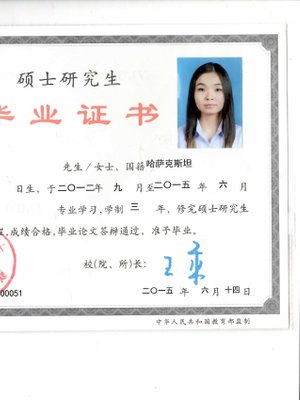 硕士研究生
毕业证书
先生/女士,国籍哈萨克斯坦
日生,于二〇一二年 九 月至二〇一五 年 六 月
专业学习,学制 三 年,修完硕士研究生
成绩合格,毕业论文答辩通过,准予毕业。
校(院、所)长:
二〇一五 年 六 月十四日
00051
中华人民共和国教育部监制